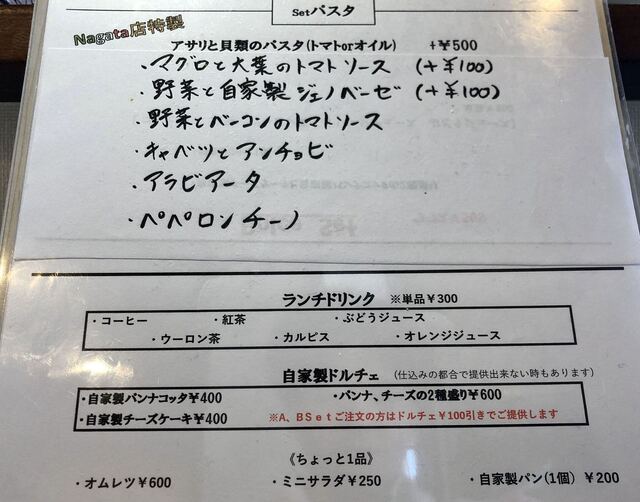 Setパスタ
Nagata店特製
アサリと貝類のパスタ(トマトorオイル) +¥500
・マグロと大葉のトマトソース (+¥100)
・野菜と自家製ジェノベーゼ (+¥100)
・野菜とベーコンのトマトソース
・キャベツとアンチョビ
・アラビアータ
・ペペロンチーノ
ランチドリンク ※単品¥300
・コーヒー ・紅茶 ・ぶどうジュース
・ウーロン茶 ・カルピス ・オレンジジュース
自家製ドルチェ (仕込みの都合で提供出来ない時もあります)
・自家製パンナコッタ¥400 ・パンナ、チーズの2種盛り¥600
・自家製チーズケーキ¥400 ※A、BSetご注文の方はドルチェ¥100引きでご提供します
《ちょっと1品》
・オムレツ¥600 ・ミニサラダ¥250 ・自家製パン(1個) ¥200